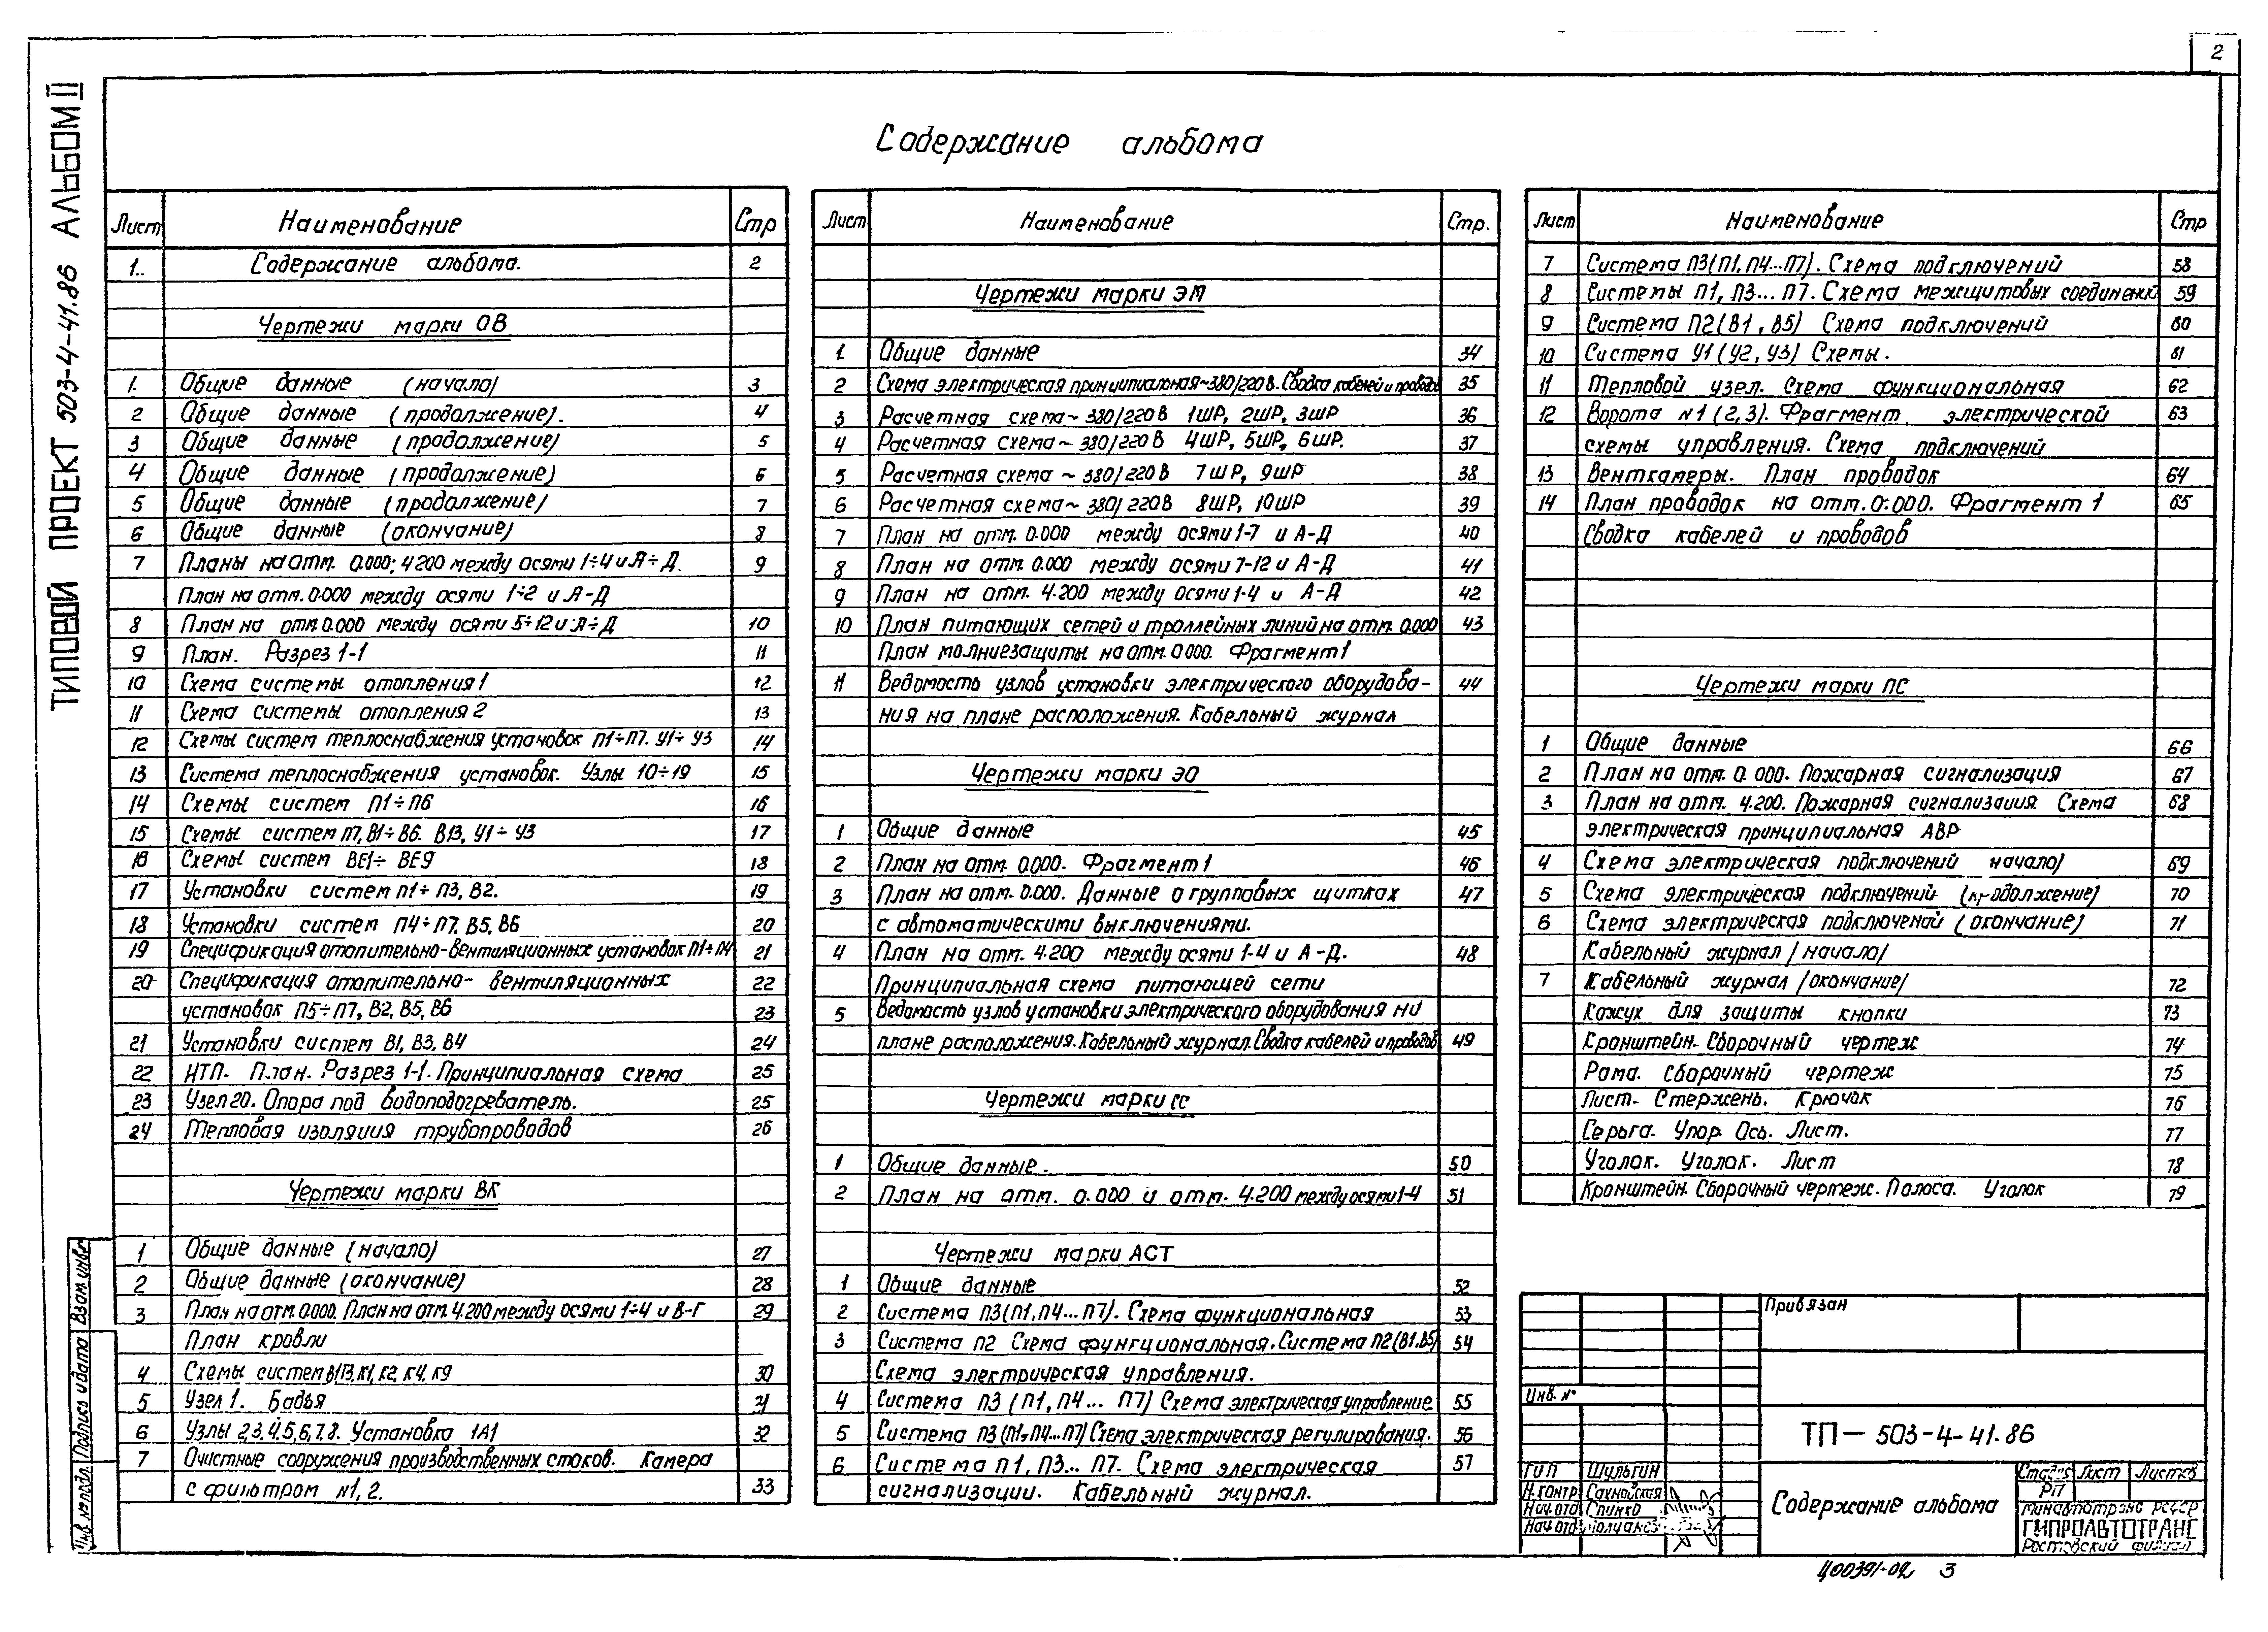 2
ТИПОВОЙ ПРОЕКТ 503-4-41.86 АЛЬБОМ II
Содержание альбома
Лист Наименование Стр
1.. Содержание альбома. 2
Чертежи марки ОВ
1. Общие данные (начало) 3
2 Общие данные (продолжение). 4
3 Общие данные (продолжение) 5
4 Общие данные (продолжение) 6
5 Общие данные (продолжение) 7
6 Общие данные (окончание) 8
7 Планы на отм. 0.000; 4200 между осями 1÷4 и А÷Д. 9
План на отм. 0.000 между осями 1÷2 и А-Д
8 План на отм. 0.000 между осями 5÷12 и А÷Д 10
9 План. Разрез 1-1 11
10 Схема системы отопления 1 12
11 Схема системы отопления 2 13
12 Схемы систем теплоснабжения установок П1÷П7. У1÷У3 14
13 Система теплоснабжения установок. Узлы 10÷19 15
14 Схемы систем П1÷П6 16
15 Схемы систем П7, В1÷В6. В13, У1÷У3 17
16 Схемы систем ВЕ1÷ВЕ9 18
17 Установки систем П1÷П3, В2. 19
18 Установки систем П4÷П7. В5, В6 20
19 Спецификация отопительно-вентиляционных установок П1÷П4 21
20 Спецификация отопительно-вентиляционных 22
установок П5÷П7, В2, В5, В6 23
21 Установки систем В1, В3, В4 24
22 ИТП. План. Разрез 1-1. Принципиальная схема 25
23 Узел 20. Опора под водоподогреватель. 25
24 Тепловая изоляция трубопроводов 26
Чертежи марки ВК
1 Общие данные (начало) 27
2 Общие данные (окончание) 28
3 План на отм. 0.000. План на отм. 4.200 между осями 1÷4 и В-Г 29
План кровли
4 Схемы систем В1, Т3, К1, К2, К4, К9 30
5 Узел 1. Бадья 31
6 Узлы 2,3,4,5,6,7,8. Установка 1А1 32
7 Очистные сооружения производственных стоков. Камера
с фильтром №1, 2. 33
Лист Наименование Стр.
Чертежи марки ЭМ
1. Общие данные 34
2 Схема электрическая принципиальная ~380/220В. Сводка кабелей и проводов 35
3 Расчетная схема ~ 380/220В 1ШР, 2ШР, 3ШР 36
4 Расчетная схема ~ 380/220В 4ШР, 5ШР, 6ШР. 37
5 Расчетная схема ~ 380/220В 7ШР, 9ШР 38
6 Расчетная схема ~ 380/220В 8ШР, 10ШР 39
7 План на отм. 0.000 между осями 1-7 и А-Д 40
8 План на отм. 0.000 между осями 7-12 и А-Д 41
9 План на отм. 4.200 между осями 1-4 и А-Д 42
10 План питающих сетей и троллейных линий на отм. 0.000 43
План молниезащиты на отм. 0.000. Фрагмент 1
11 Ведомость узлов установки электрического оборудова- 44
ния на плане расположения. Кабельный журнал
Чертежи марки ЭО
1 Общие данные 45
2 План на отм. 0.000. Фрагмент 1 46
3 План на отм. 0.000. Данные о групповых щитках 47
с автоматическими выключениями.
4 План на отм. 4.200 между осями 1-4 и А-Д. 48
Принципиальная схема питающей сети
5 Ведомость узлов установки электрического оборудования на
плане расположения. Кабельный журнал. Сводка кабелей и проводов 49
Чертежи марки СС
1 Общие данные. 50
2 План на отм. 0.000 и отм. 4.200 между осями 1-4 51
Чертежи марки АСТ
1 Общие данные 52
2 Система П3 (П1, П4... П7). Схема функциональная 53
3 Система П2 Схема функциональная. Система П2 (В1, В5) 54
Схема электрическая управления.
4 Система П3 (П1, П4... П7) Схема электрическая управление 55
5 Система П3 (П1, П4... П7) Схема электрическая регулирования. 56
6 Система П1, П3... П7. Схема электрическая 57
сигнализации. Кабельный журнал.
Лист Наименование Стр
7 Система П3 (П1, П4... П7). Схема подключений 58
8 Системы П1, П3... П7. Схема межщитовых соединений 59
9 Система П2 (В1, В5) Схема подключений 60
10 Система У1 (У2, У3) Схемы. 61
11 Тепловой узел. Схема функциональная 62
12 Ворота №1 (2, 3). Фрагмент электрической 63
схемы управления. Схема подключений
13 Венткамеры. План проводок 64
14 План проводок на отм. 0.000. Фрагмент 1 65
Сводка кабелей и проводов
Чертежи марки ПС
1 Общие данные 66
2 План на отм. 0.000. Пожарная сигнализация 67
3 План на отм. 4.200. Пожарная сигнализация. Схема 68
электрическая принципиальная АВР
4 Схема электрическая подключений начало) 69
5 Схема электрическая подключений (продолжение) 70
6 Схема электрическая подключений (окончание) 71
Кабельный журнал /начало/
7 Кабельный журнал /окончание/ 72
Кожух для защиты кнопки 73
Кронштейн. Сборочный чертеж 74
Рама. Сборочный чертеж 75
Лист. Стержень. Крючок 76
Серьга. Упор. Ось. Лист. 77
Уголок. Уголок. Лист 78
Кронштейн. Сборочный чертеж. Полоса. Уголок 79
Привязан
Инв. №
ТП — 503-4-41.86
ГИП Шульгин
Н.контр Сахновская
Нач.отд Спинко
Нач.отд
Содержание альбома
Стадия Лист Листов
РП
Минавтотранс РСФСР
ГИПРОАВТОТРАНС
Ростовский филиал
Взам. инв.
Подпись и дата
Инв. № подл.
Ц00391-02 3